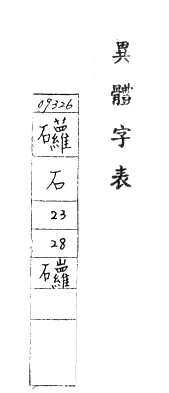 異體字表
09326
石
23
28